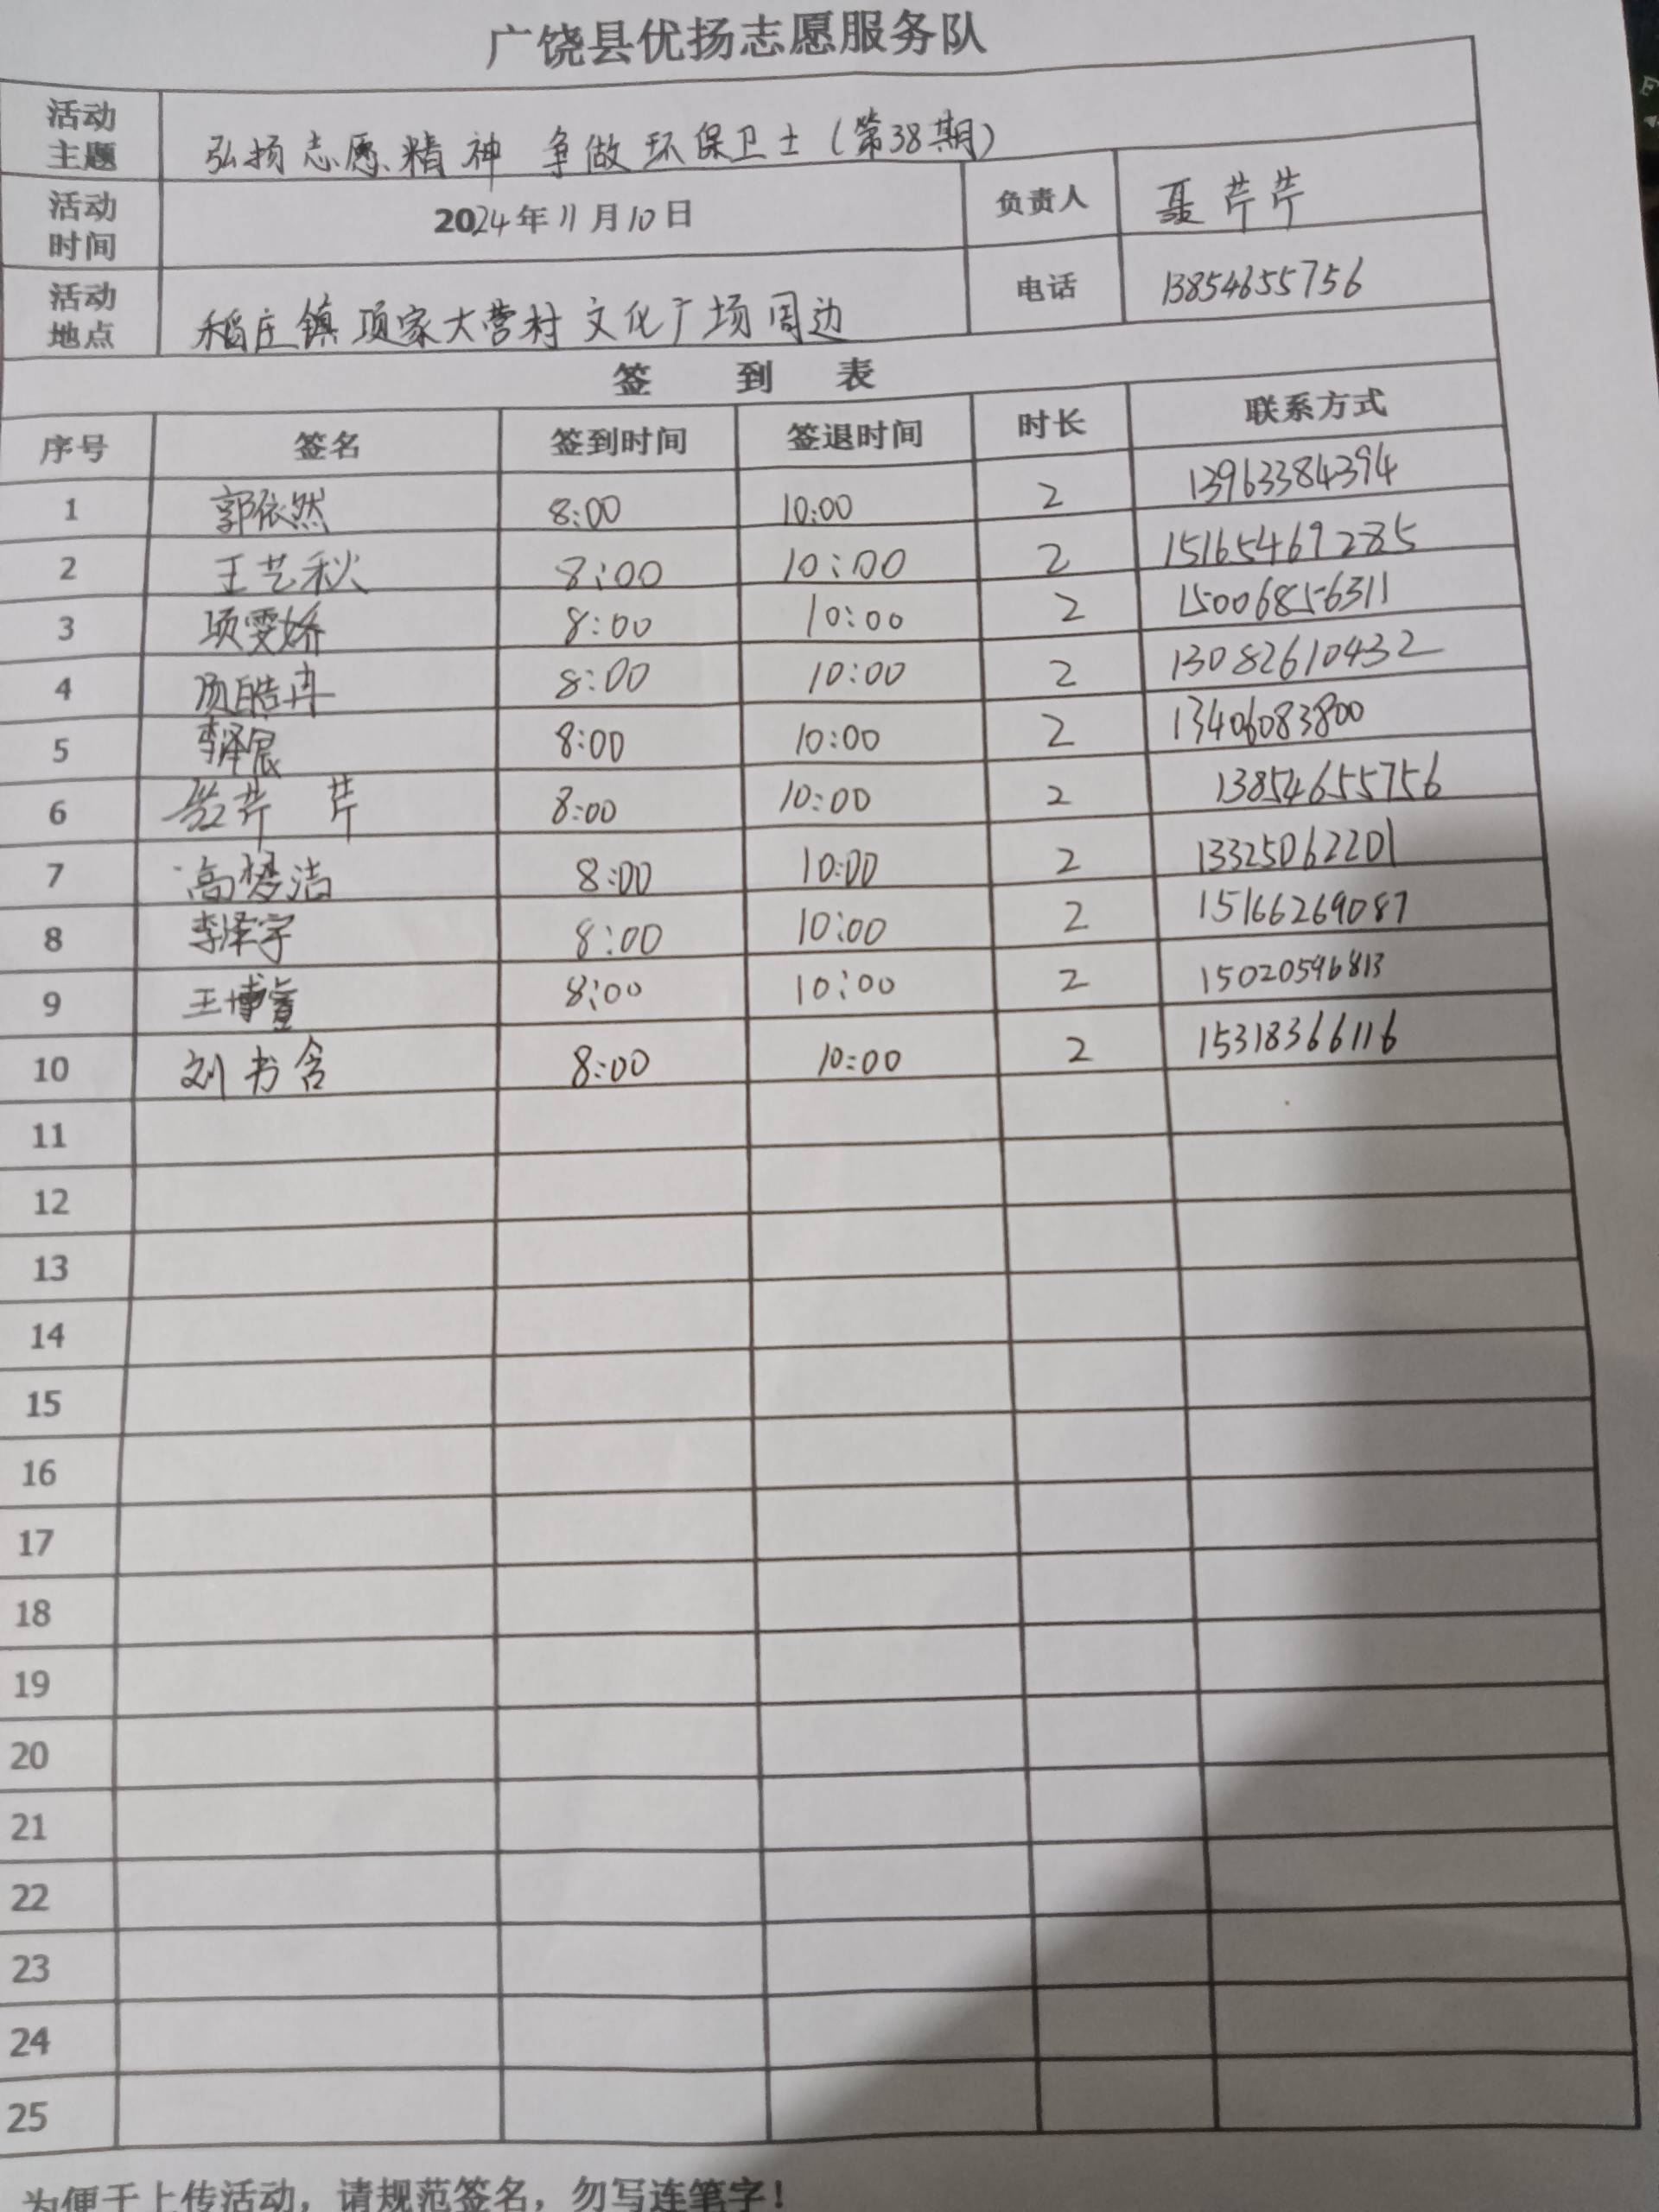 广饶县优扬志愿服务队
活动主题 弘扬志愿精神 争做环保卫士(第38期)
活动时间 2024年11月10日 负责人 聂芹芹
活动地点 稻庄镇项家大营村文化广场周边 电话 13854655756
签 到 表
序号 签名 签到时间 签退时间 时长 联系方式
1 郭依然 8:00 10:00 2 13963384394
2 王艺秋 8:00 10:00 2 15165469285
3 项雯娇 8:00 10:00 2 15006856311
4 项皓冉 8:00 10:00 2 13082610432
5 李泽宸 8:00 10:00 2 13406083800
6 聂芹芹 8:00 10:00 2 13854655756
7 高梦洁 8:00 10:00 2 13325062201
8 李泽宇 8:00 10:00 2 15166269087
9 王博萱 8:00 10:00 2 15020596813
10 刘书含 8:00 10:00 2 15318366116
11
12
13
14
15
16
17
18
19
20
21
22
23
24
25
为便于上传活动，请规范签名，勿写连笔字！